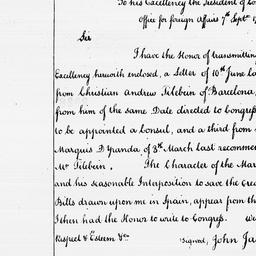 To his Excellency the President of Co
Office for foreign Affairs 7th Septr 1
Sir
I have the Honor of transmitting
Excellency herewith enclosed, a Letter of 10th June La
from Christian Andrew Tilebein of Barcelona,
from him of the same Date directed to Congress
to be appointed a Consul, and a third from
Marquis D'Yranda of 8th March last recommen
Mr Tilebein. The Character of the Mar
and his seasonable Interposition to save the Cre
Bills drawn upon me in Spain, appear from th
I then had the Honor to write to Congress. W
Respect & Esteem &ca
signed, John Ja